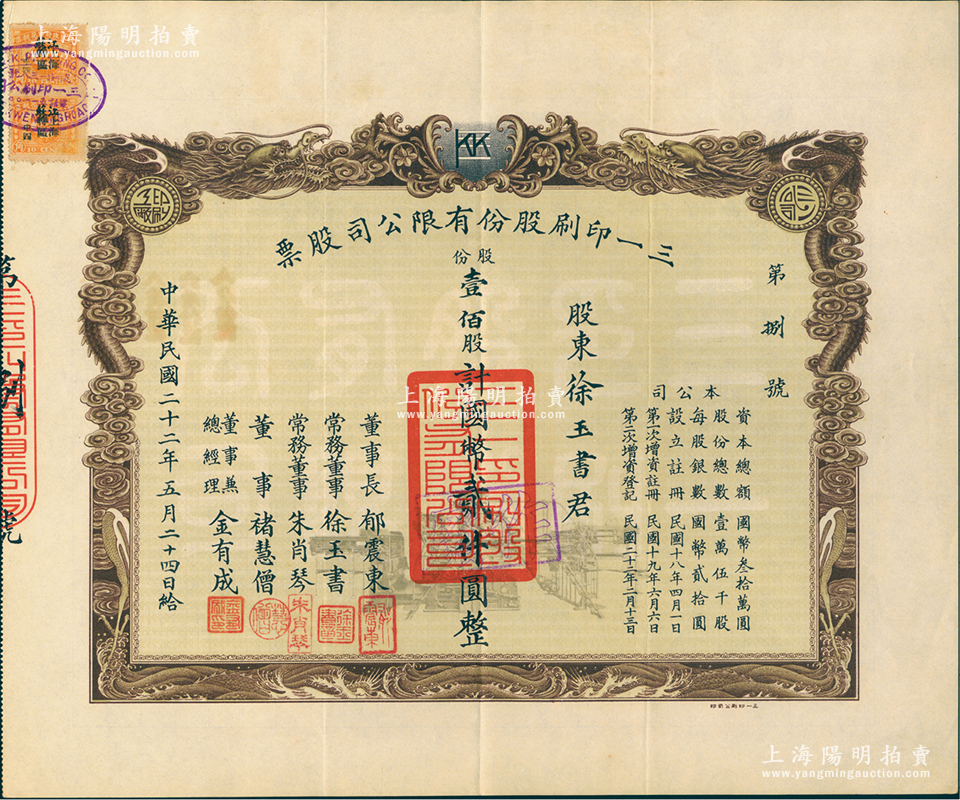 上海陽明拍賣
www.yangmingauction.com
三一印刷股份有限公司股票
第捌號
本公司
資本總額 國幣叁拾萬圓
股份總數 壹萬伍千股
每股銀數 國幣貳拾圓
設立註冊 民國十八年四月一日
第一次增資註冊 民國十九年六月六日
第二次增資登記 民國二十二年二月十三日
股東徐玉書君
股份
壹佰股計國幣貳仟圓整
董事長 郁震東
常務董事 徐玉書
常務董事 朱肖琴
董事 褚慧僧
董事兼總經理 金有成
中華民國二十二年五月二十四日給
第 捌 號
上海陽明拍賣
www.yangmingauction.com
三一印刷公司印
上海陽明拍賣
www.yangmingauction.com